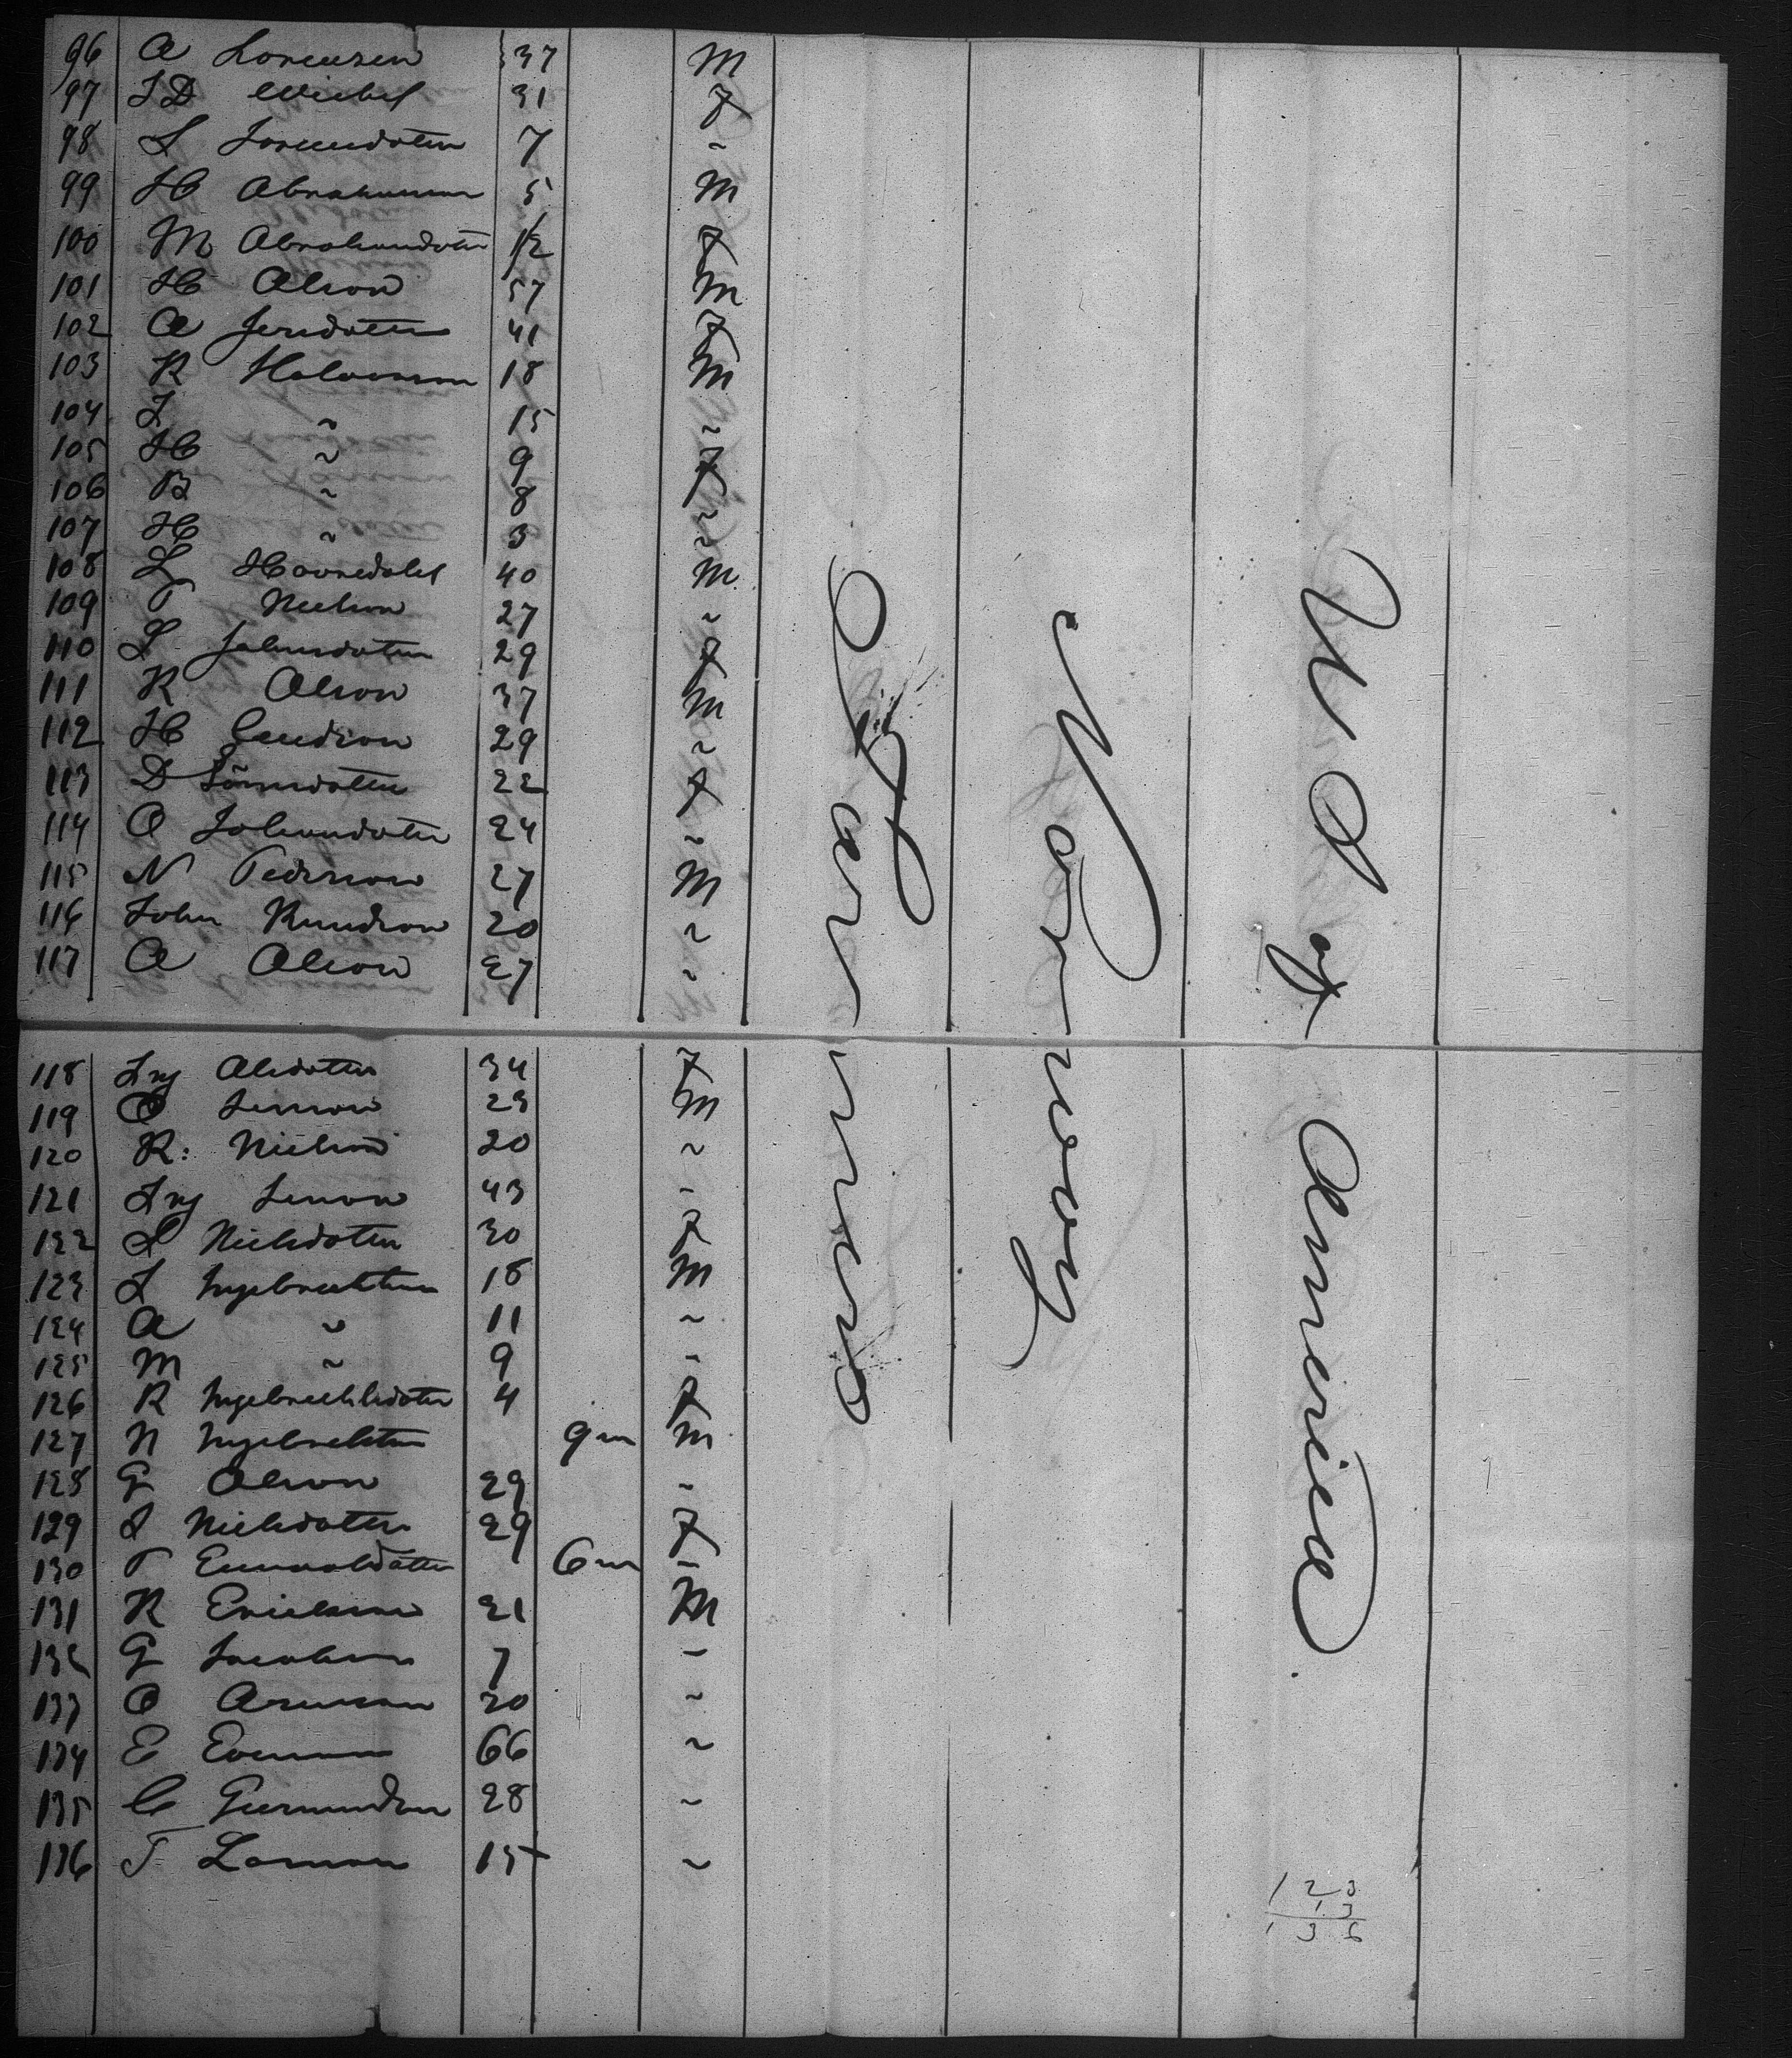 96 A Lorensen 37 M
97 I D Wiebel 31 F
98 L Lorensdatter 7 "
99 H Abrahamsen 5 M
100 M Abrahamsdatter 1/2 F
101 H Olson 57 M
102 A Jensdatter 41 F
103 R Halvorsen 18 M
104 L " 15 "
105 H " 9 F
106 B " 8 "
107 H " 3 "
108 L Hovredalel 40 M
109 T Nielson 27 "
110 L Johnsdatter 29 F
111 K Olson 37 M
112 H Gundson 29 "
113 D Sörensdatter 22 F
114 O Johansdatter 24 "
115 N Pederson 27 M
116 John Knudson 20 "
117 A Olson 27 "
118 Ing Olsdatter 34 F
119 O Simson 23 M
120 R: Nielson 20 "
121 Ing 43 "
122 L Nielsdatter 30 F
123 L Ingebrechtsen 18 M
124 A " 11 "
125 M " 9 "
126 R Ingebrechtsdatter 4 F
127 N Ingebrechtsen 9 m M
128 G Olson 29 "
129 L Nielsdatter 29 F
130 T 6 m "
131 K Ericksen 21 M
132 G Jacobsen 7 "
133 O 30 "
134 E Evensen 66 "
135 C Germundsen 28 "
136 T Larsen 15 "
Farmers
Norway
U S of America
123
13
136